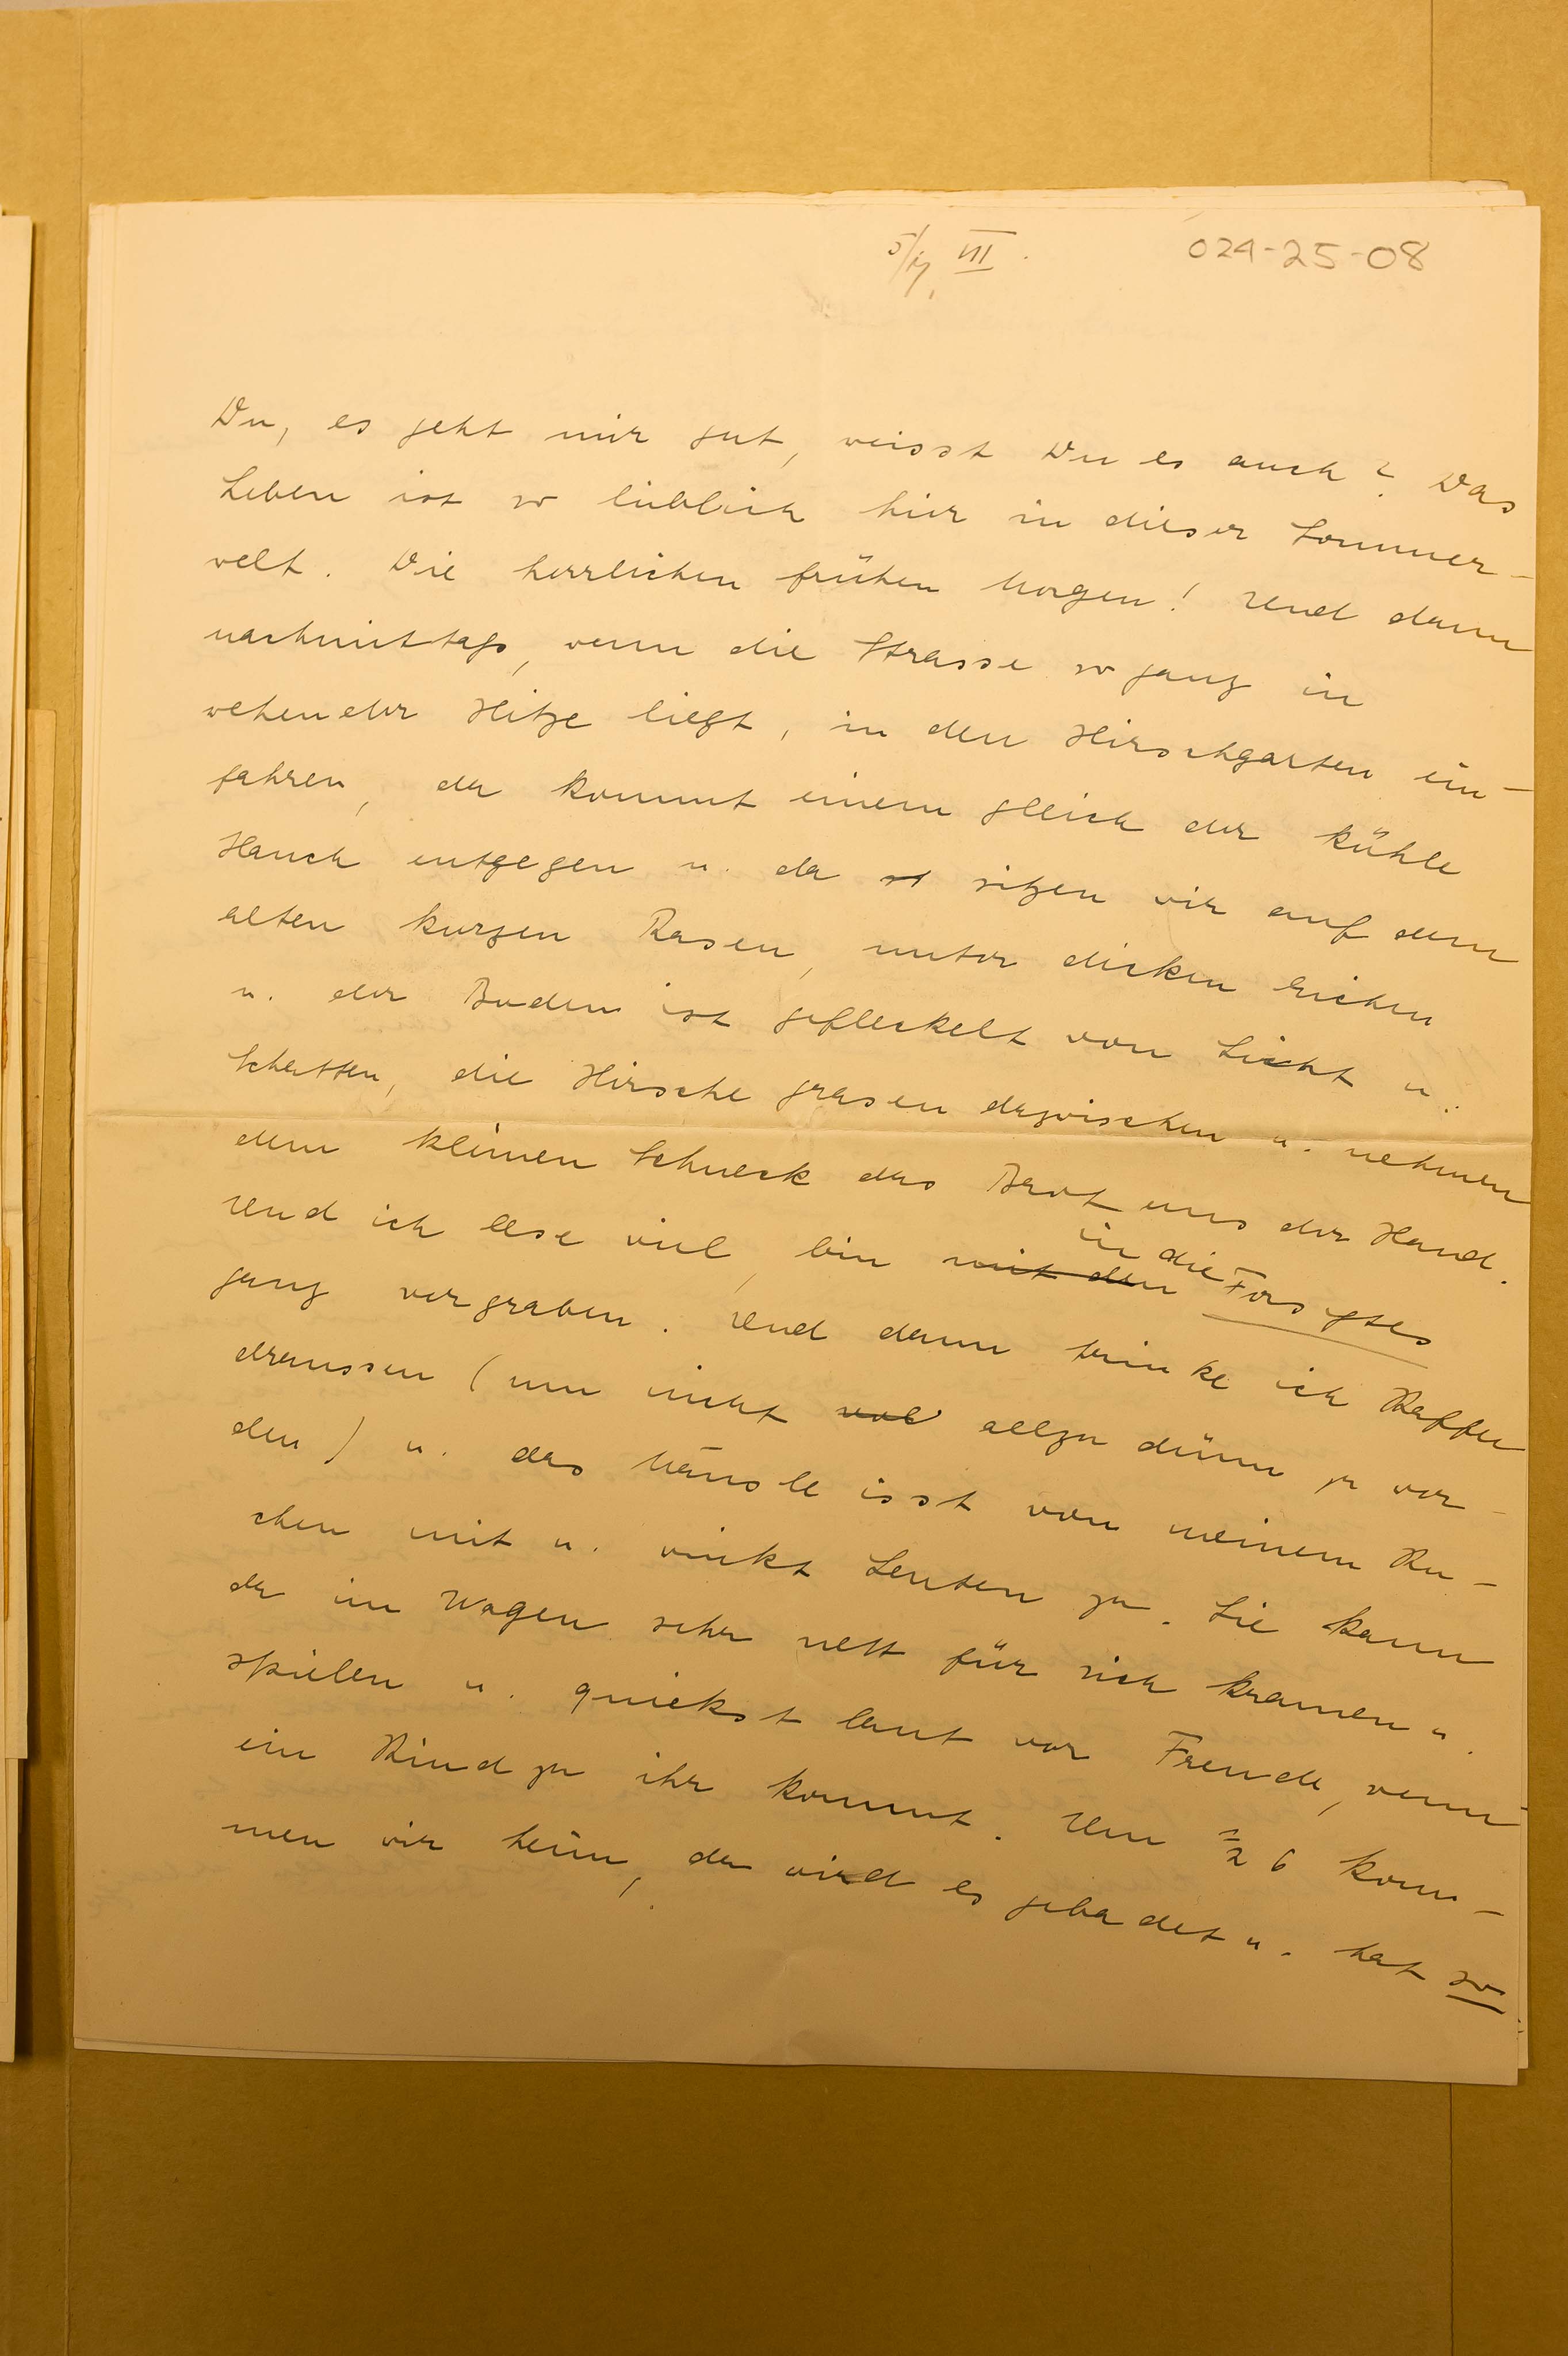 5/ III.
024-25-08
Du, es geht mir gut, weisst Du es auch? Das
Leben ist so lieblich hier in dieser Sommer-
welt. Die herrlichen frühen Morgen! Und dann
nachmittags, wenn die Strasse so ganz in
wehender Hitze liegt, in den Hirschgarten ein-
fahren, da kommt einem gleich der kühle
Hauch entgegen u. da sitzen wir auf dem
alten kurzen Rasen, unter dicken Eichen
u. der Boden ist gefleckelt von Licht u.
Schatten, die Hirsche grasen dazwischen u. nehmen
dem kleinen Schneck das Brot aus der Hand.
Und ich lese viel, bin mit den in die Forsytes
ganz vergraben. Und dann trinke ich Kaffee
draussen (um nicht allzu dünn zu wer-
den) u. das Mäusle isst von meinem Ku-
chen mit u. winkt Leuten zu. Sie kann
da im Wagen sehr nett für sich kramen u.
spielen u. quiekst laut vor Freude, wenn
ein Kind zu ihr kommt. Um ½ 6 kom-
men wir heim, da wird es gebadet u. hat so